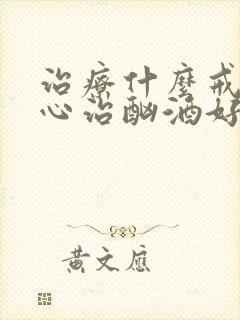 治療什麼戒
心治酗酒好
黃文應